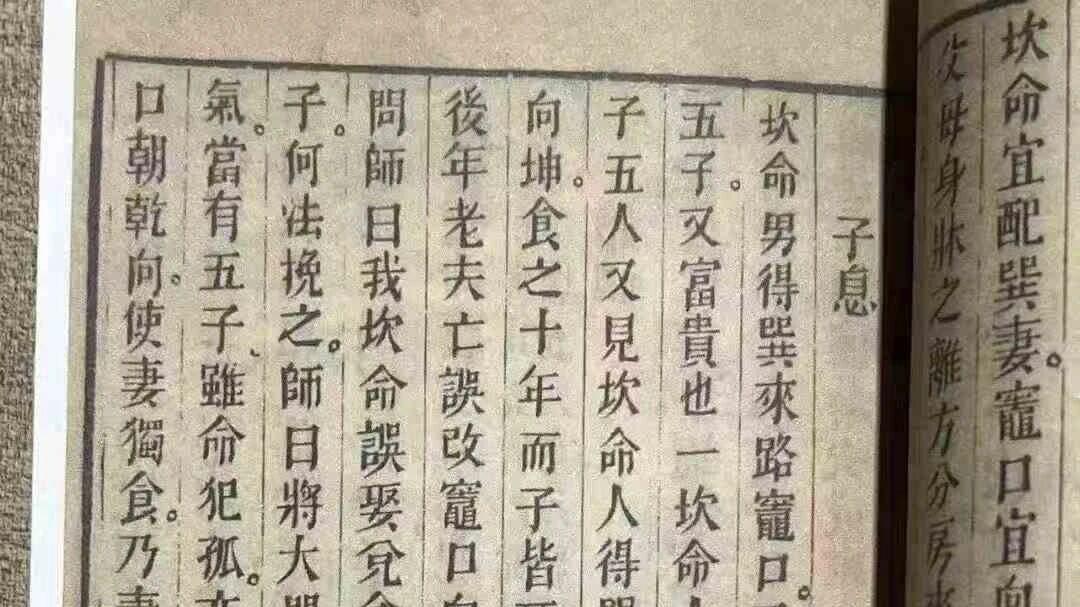 坎命宜配巽妻。竈口宜向
父母身牀之離方分房來
子息
坎命男得巽來路竈口。
五子。又富貴也一坎命
子五人又見坎命人得
向坤。食之十年而子皆
後年老夫亡誤改竈口向
問師曰我坎命誤娶兌命
子。何法挽之。師曰將大門
氣。當有五子、雖命犯孤。亦
口朝乾向。使妻獨食。乃妻